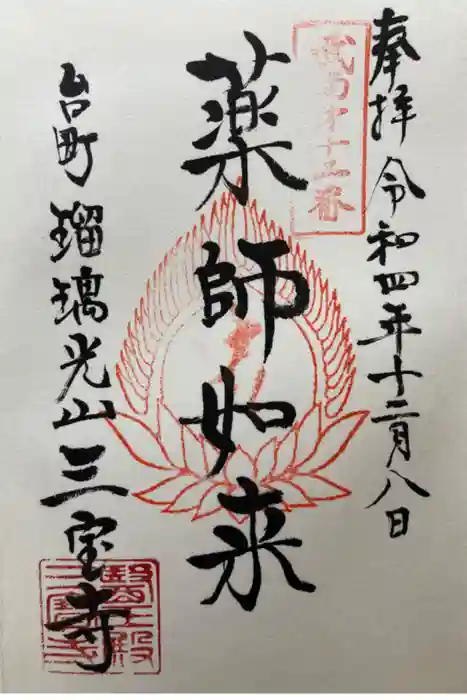 奉拝 令和四年十二月八日
薬師如来
台町 瑠璃光山 三宝寺